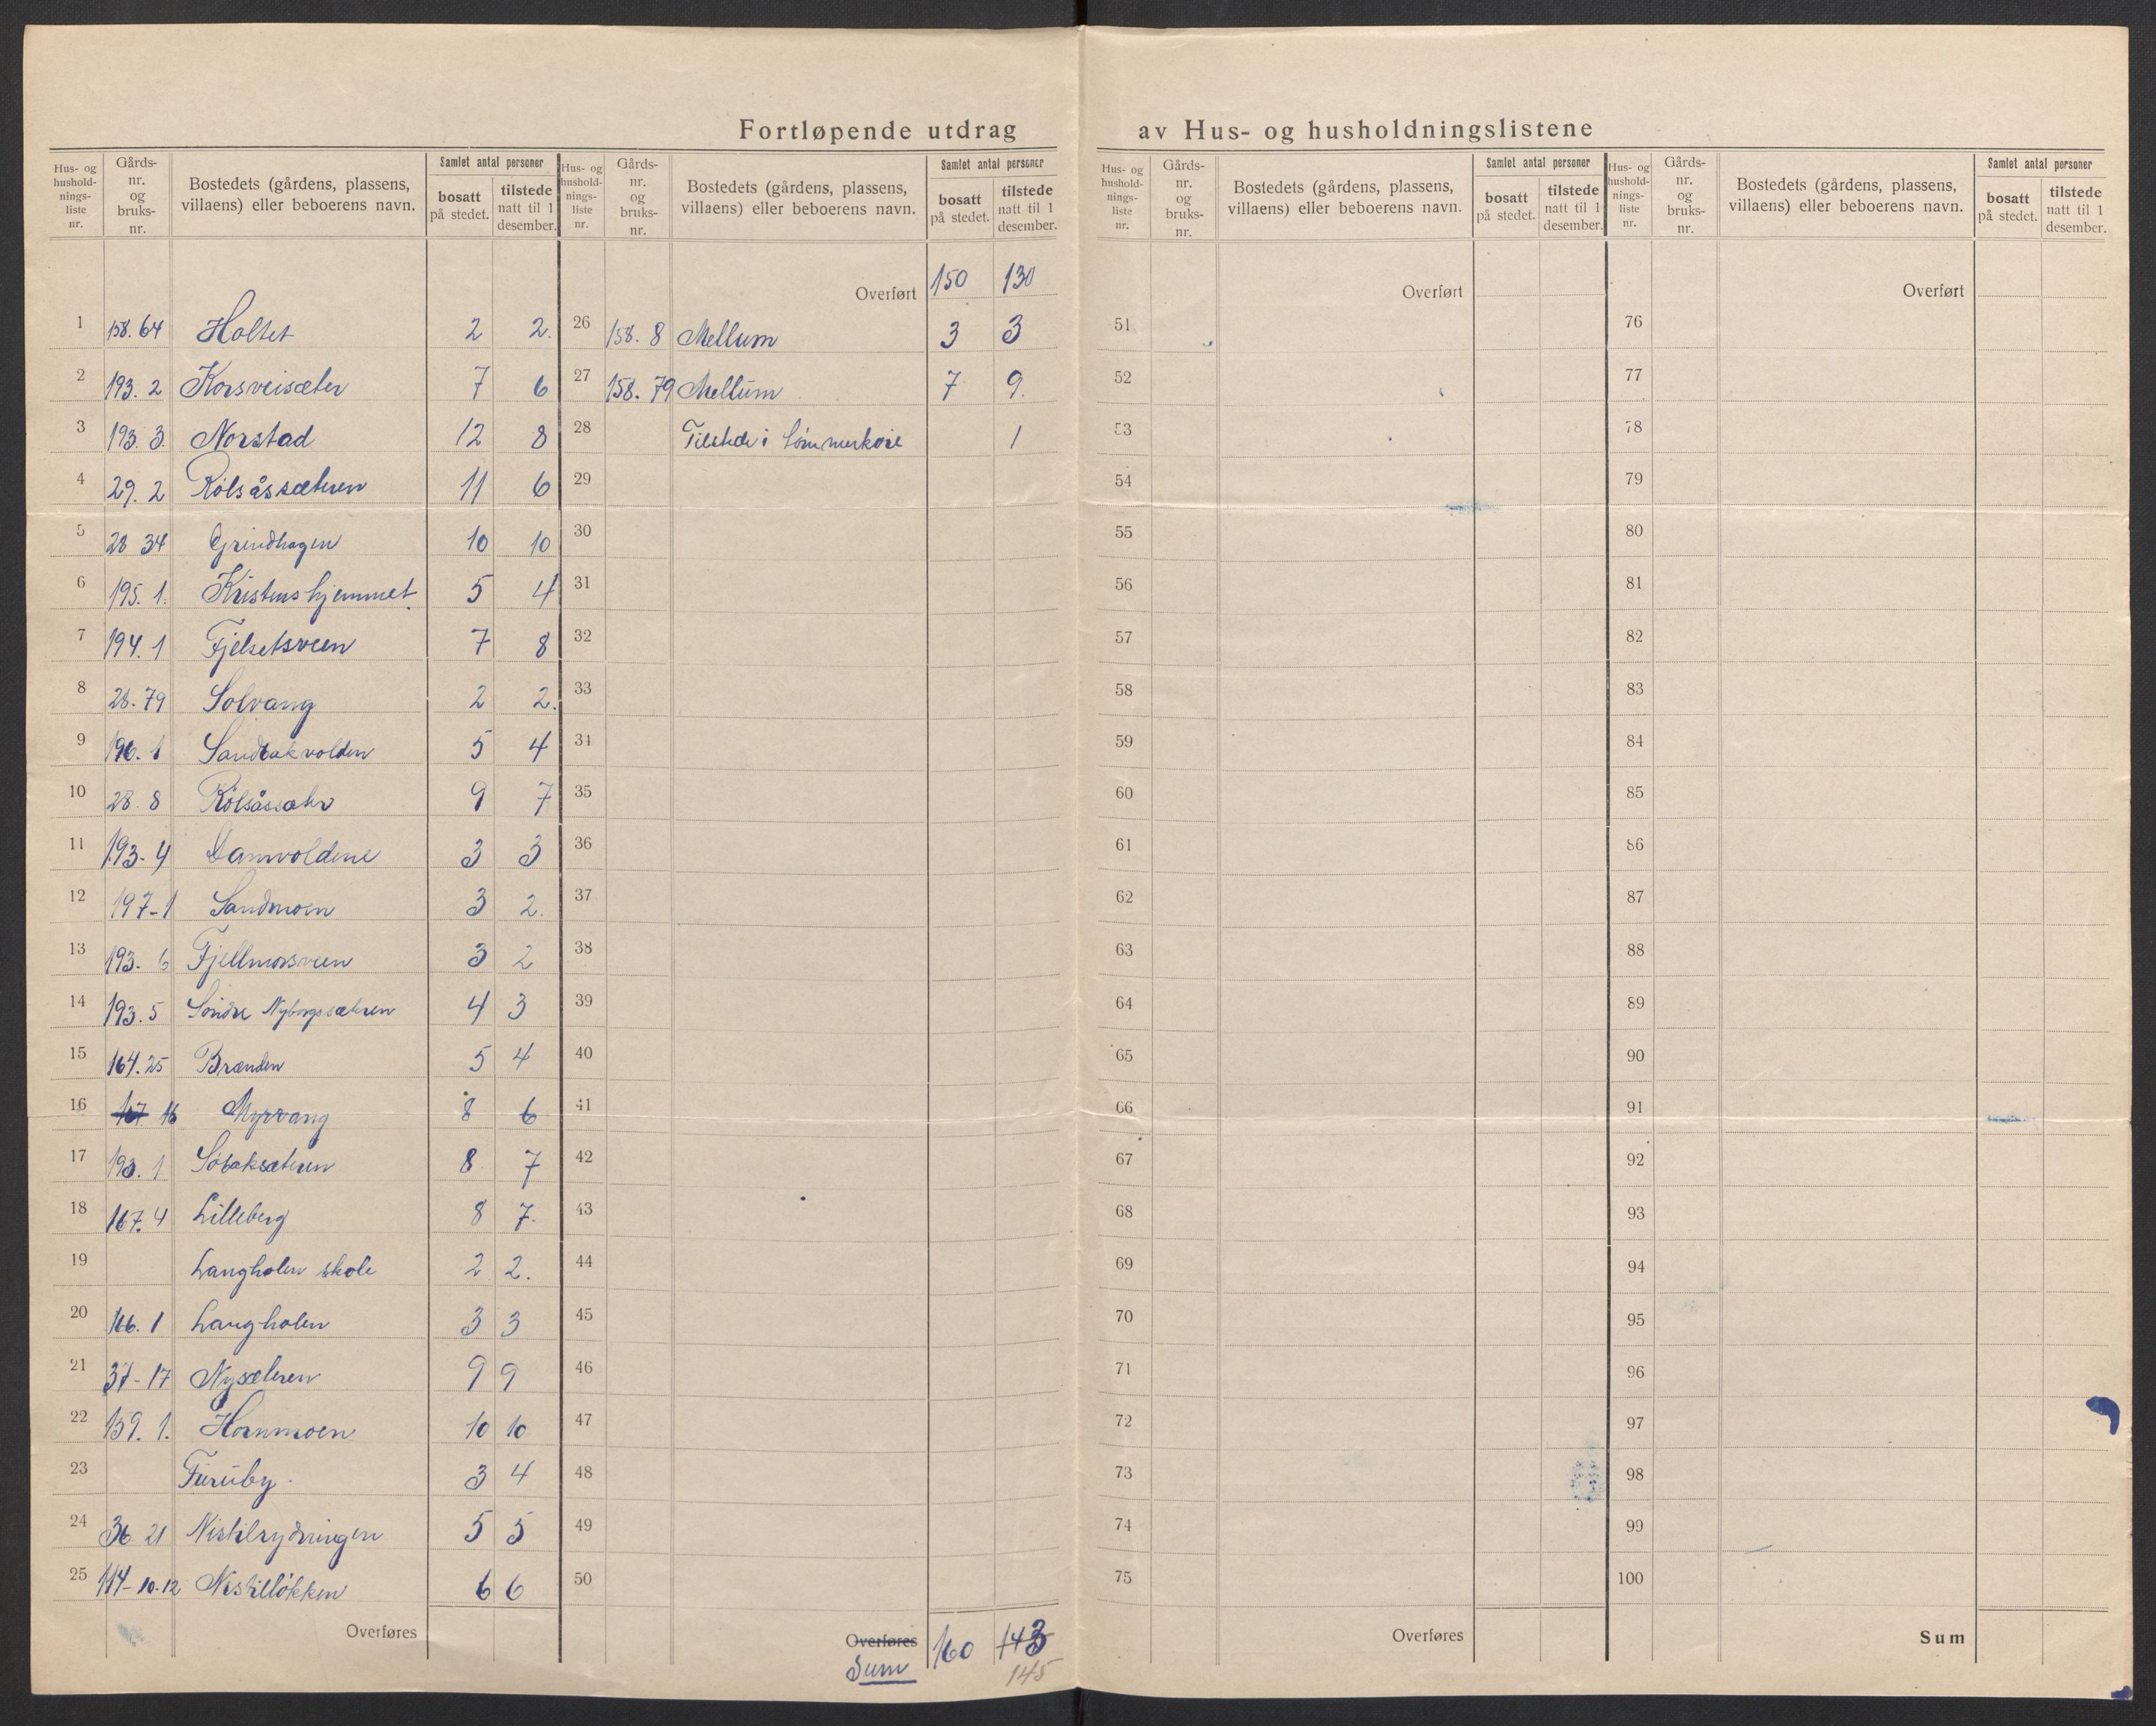 Fortløpende utdrag av Hus- og husholdningslistene
Hus- og hushold- nings- liste nr. Gårds- nr. og bruks- nr. Bostedets (gårdens, plassens, villaens) eller beboerens navn. Samlet antal personer bosatt på stedet. tilstede natt til 1 desember.
1 158. 64 Holtet 2 2.
2 193. 2 Korsveisæter 7 6
3 193. 3. Norstad 12 8
4 29. 2 Rölsåssæteren 11 6
5 28 34 Grindhagen 10 10
6 195. 1. Kristenshjemmet 5 4
7 194. 1 Fjelsetsveen 7 8
8 28. 79 Solvang 2 2.
9 196. 1 Sandbakvolden 5 4
10 28. 8 Rölsåssæter 9 7
11 193- 4 Damvoldene 3 3
12 197-1 Sandmoen 3 2.
13 193. 6 Fjellmorsveen 3 2
14 193. 5 Söndre Nyborgssæteren 4 3
15 164. 25 Brænden 5 4
16 167 16 Myrvang 8 6
17 193. 1 Söbaksæteren 8 7
18 167. 4 Lilleberg 8 7.
19 Langholen skole 2 2.
20 166. 1 Langholen 3 3
21 37-17 Nysæteren 9 9
22 159. 1. Hornmoen 10 10
23 Furuby. 3 4
24 36. 21 Nistilrydningen 5 5
25 114-10.12 Nistillökken 6 6
Overføres
Hus- og hushold- nings- liste nr. Gårds- nr. og bruks- nr. Bostedets (gårdens, plassens, villaens) eller beboerens navn. Samlet antal personer bosatt på stedet. tilstede natt til 1 desember.
Overført 150 130
26 158. 8 Mellum 3 3
27 158. 79 Mellum 7 9.
28 Tilstede i tömmerkoie 1
29
30
31
32
33
34
35
36
37
38
39
40
41
42
43
44
45
46
47
48
49
50
Overføres
Sum 160 143
145
Hus- og hushold- nings- liste nr. Gårds- nr. og bruks- nr. Bostedets (gårdens, plassens, villaens) eller beboerens navn. Samlet antal personer bosatt på stedet. tilstede natt til 1 desember.
Overført
51
52
53
54
55
56
57
58
59
60
61
62
63
64
65
66
67
68
69
70
71
72
73
74
75
Overføres
Hus- og hushold- nings- liste nr. Gårds- nr. og bruks- nr. Bostedets (gårdens, plassens, villaens) eller beboerens navn. Samlet antal personer bosatt på stedet. tilstede natt til 1 desember.
Overført
76
77
78
79
80
81
82
83
84
85
86
87
88
89
90
91
92
93
94
95
96
97
98
99
100
Sum